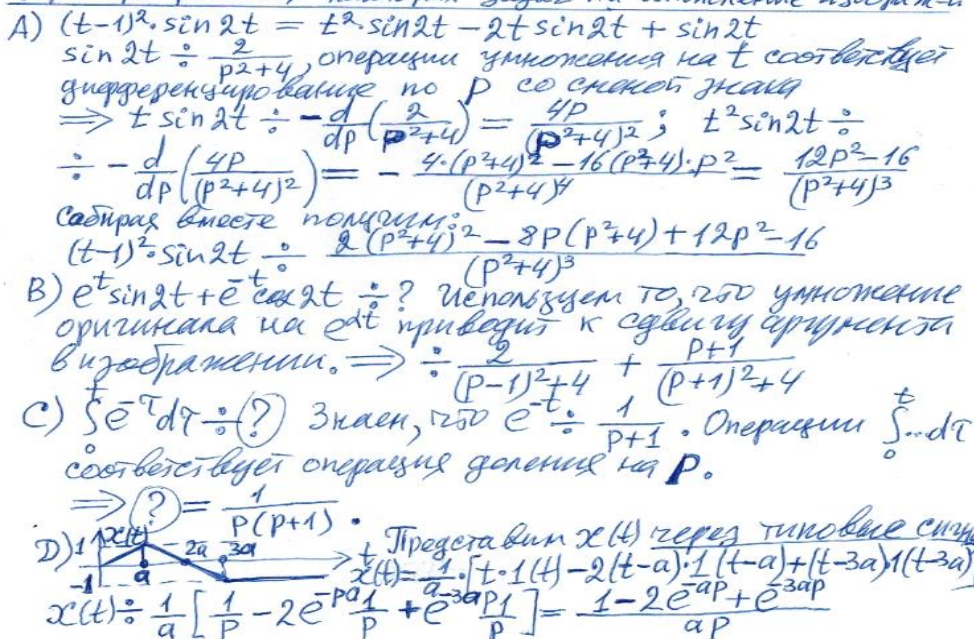 А) (t-1)²·sin2t = t²·sin2t - 2t sin2t + sin2t
sin2t ÷ 2/(p²+4), операции умножения на t соответствует
дифференцирование по p со сменой знака
⇒ t sin2t ÷ -d/dp(2/(p²+4)) = 4p/(p²+4)²; t²sin2t ÷
÷ -d/dp(4p/(p²+4)²) = -(4·(p²+4)² - 16(p²+4)·p²)/(p²+4)⁴ = (12p²-16)/(p²+4)³
Собирая вместе получим:
(t-1)²·sin2t ÷ (2(p²+4)² - 8p(p²+4) + 12p²-16)/(p²+4)³
В) eᵗsin2t + e⁻ᵗcos2t ÷ ? Используем то, что умножение
оригинала на e^αt приводит к сдвигу аргумента
в изображении. ⇒ ÷ 2/((p-1)²+4) + (p+1)/((p+1)²+4)
С) ∫₀ᵗ e^-τ dτ ÷ (?) Знаем, что e⁻ᵗ ÷ 1/(p+1). Операции ∫₀ᵗ...dτ
соответствует операция деления на p.
⇒ (?) = 1/(p(p+1)).
D) 1 x(t) 2a 3a t Представим x(t) через типовые
-1 a x(t) = 1/a·[t·1(t) - 2(t-a)·1(t-a) + (t-3a)1(t-3a)
x(t) ÷ 1/a [1/p - 2e^-pa 1/p + e^-3ap 1/p] = (1-2e^-ap + e^-3ap)/(ap)